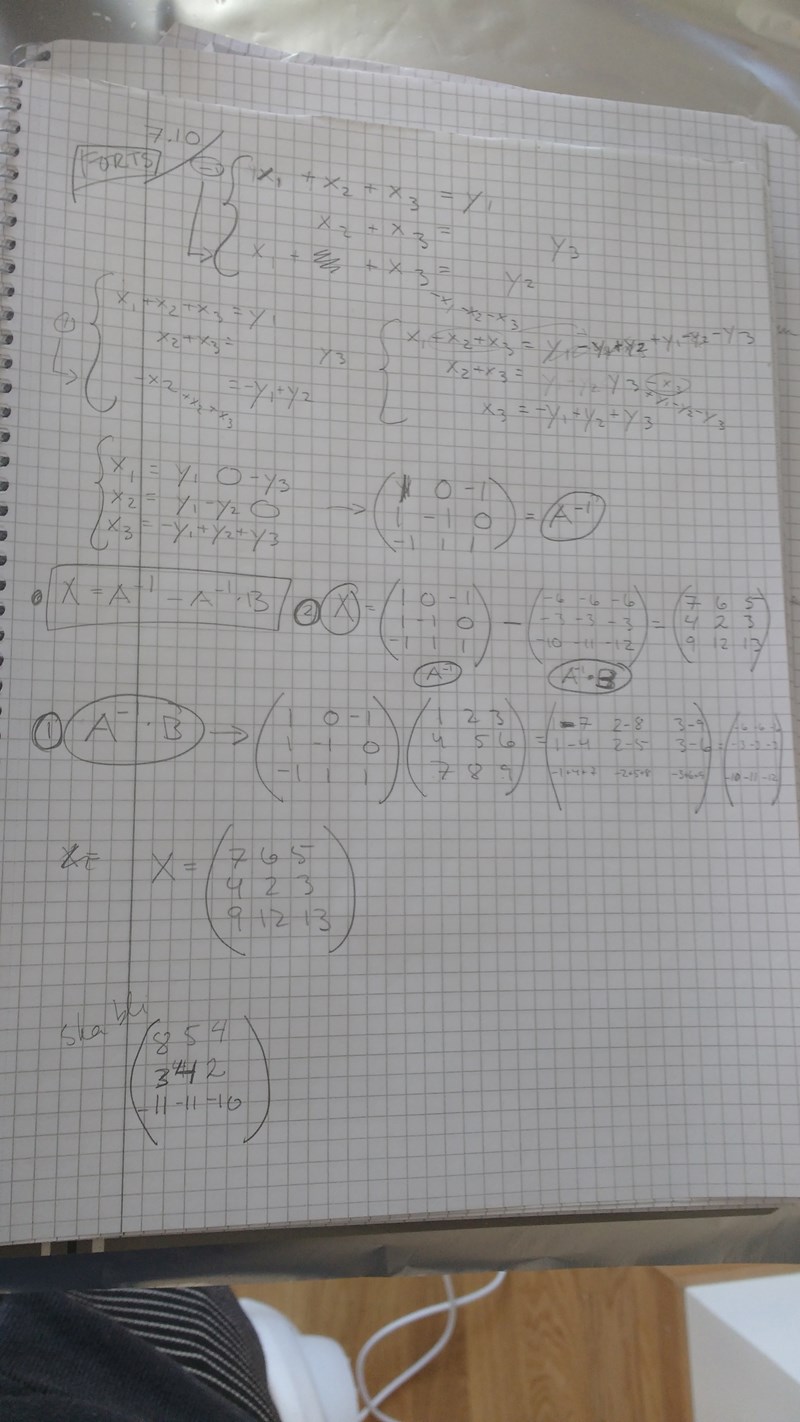 7.10
FORTS
x₁ + x₂ + x₃ = y₁
x₂ + x₃ = y₃
x₁ + + x₃ = y₂
x₁ + x₂ + x₃ = y₁
x₂ + x₃ = y₃
-x₂ = -y₁ + y₂
+x₂ + x₃
-x₁ -x₂ -x₃
x₁ + x₂ + x₃ = y₁ - y₁ + y₂ + y₁ - y₂ - y₃
x₂ + x₃ = y₃ - x₃
+y₁ - y₂ - y₃
x₃ = -y₁ + y₂ + y₃
x₁ = y₁ 0 - y₃
x₂ = y₁ - y₂ 0
x₃ = -y₁ + y₂ + y₃
→ (1 0 -1
1 -1 0
-1 1 1) = A⁻¹
X = A⁻¹ - A⁻¹·B
② X = (1 0 -1
1 -1 0
-1 1 1) - (-6 -6 -6
-3 -3 -3
-10 -11 -12) = (7 6 5
4 2 3
9 12 13)
A⁻¹
A⁻¹·B
① A⁻¹·B → (1 0 -1
1 -1 0
-1 1 1) (1 2 3
4 5 6
7 8 9) = (1-7 2-8 3-9
1-4 2-5 3-6
-1+4+7 -2+5+8 -3+6+9) = (-6 -6 -6
-3 -3 -3
-10 -11 -12)
X =
X = (7 6 5
4 2 3
9 12 13)
ska bli
(8 5 4
3 4 2
-11 -11 -10)